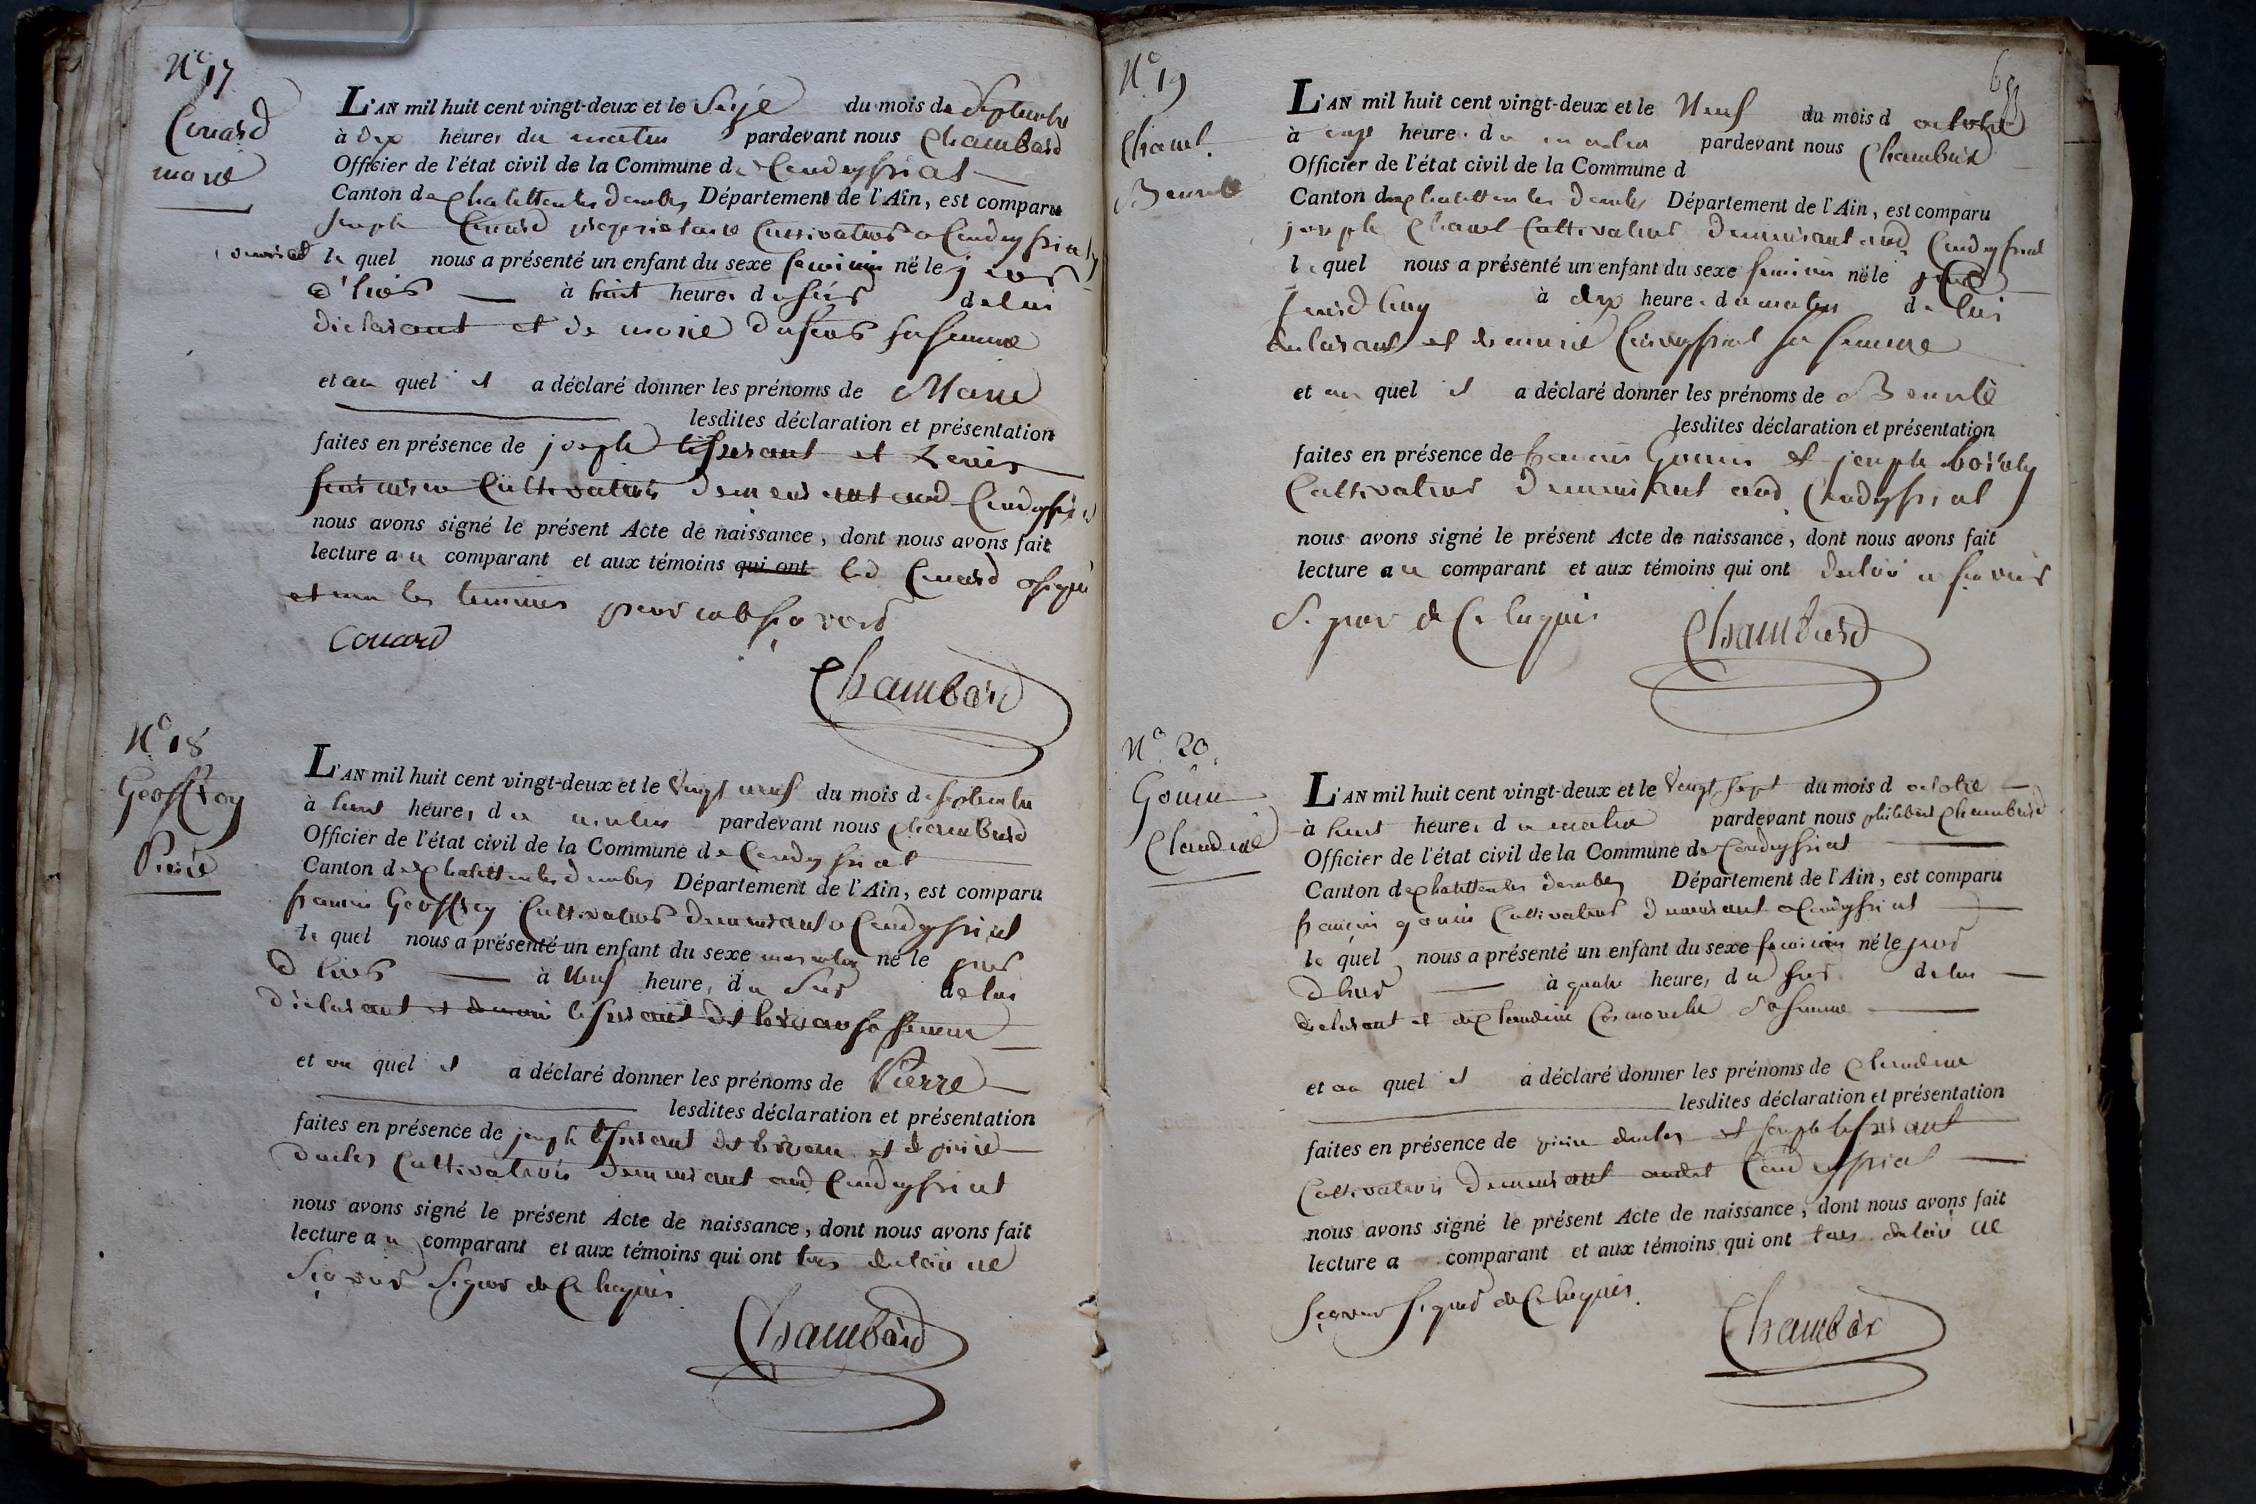 N° 17
Couard
marie
L'AN mil huit cent vingt-deux et le Seize du mois de Septembre
à dix heures du matin pardevant nous Chambard
Officier de l'état civil de la Commune de Condeyssiat
Canton de Chatillon les dombes Département de l'Ain, est comparu
joseph Couard propriétaire Cultivateur a Condeyssiat
le quel nous a présenté un enfant du sexe feminin né le jour
d'hier à huit heures du soir de lui
declarant et de marie sa femme
et au quel il a déclaré donner les prénoms de Marie
lesdites déclaration et présentation
faites en présence de joseph tisserant et
Cultivateurs demeurant aud Condeyssiat
nous avons signé le présent Acte de naissance, dont nous avons fait
lecture au comparant et aux témoins qui ont led Couard a signé
et non les temoins pour
Couard
Chambard
N° 18
Geoffroy
Pierre
L'AN mil huit cent vingt-deux et le Vingt neuf du mois de septembre
à huit heures du matin pardevant nous Chambard
Officier de l'état civil de la Commune de Condeyssiat
Canton de Chatillon les dombes Département de l'Ain, est comparu
francois Geoffroy Cultivateur demeurant a Condeyssiat
le quel nous a présenté un enfant du sexe masculin né le jour
d hier à Neuf heures du Soir de lui
declarant et de marie tisserant sa femme
et au quel il a déclaré donner les prénoms de Pierre
lesdites déclaration et présentation
faites en présence de joseph tisserant et de pierre
Cultivateurs demeurant aud Condeyssiat
nous avons signé le présent Acte de naissance, dont nous avons fait
lecture au comparant et aux témoins qui ont tous declaré ne
sçavoir signer de Ce requis
Chambard
653
N° 19
Chanel
Benoite
L'AN mil huit cent vingt-deux et le Neuf du mois d octobre
à onze heures du matin pardevant nous Chambard
Officier de l'état civil de la Commune d
Canton de Chatillon les dombes Département de l'Ain, est comparu
joseph Chanel Cultivateur demeurant aud Condeyssiat
le quel nous a présenté un enfant du sexe feminin né le
jourd huy à dix heures du matin de lui
declarant et de marie Condeyssiat sa femme
et au quel il a déclaré donner les prénoms de Benoite
lesdites déclaration et présentation
faites en présence de francois Gouin et joseph
Cultivateurs demeurant aud Condeyssiat
nous avons signé le présent Acte de naissance, dont nous avons fait
lecture au comparant et aux témoins qui ont declaré ne sçavoir
Signer de Ce requis
Chambard
N° 20
Gouin
Claudine
L'AN mil huit cent vingt-deux et le Vingt sept du mois d octobre
à huit heures du matin pardevant nous philibert Chambard
Officier de l'état civil de la Commune de Condeyssiat
Canton de Chatillon les dombes Département de l'Ain, est comparu
françois gouin Cultivateur demeurant a Condeyssiat
le quel nous a présenté un enfant du sexe feminin né le jour
d hier à quatre heures du soir de lui
declarant et de Claudine sa femme
et au quel il a déclaré donner les prénoms de Claudine
lesdites déclaration et présentation
faites en présence de pierre et joseph tisserant
Cultivateurs demeurant audit Condeyssiat
nous avons signé le présent Acte de naissance, dont nous avons fait
lecture a comparant et aux témoins qui ont tous declaré ne
sçavoir signer de Ce requis.
Chambard